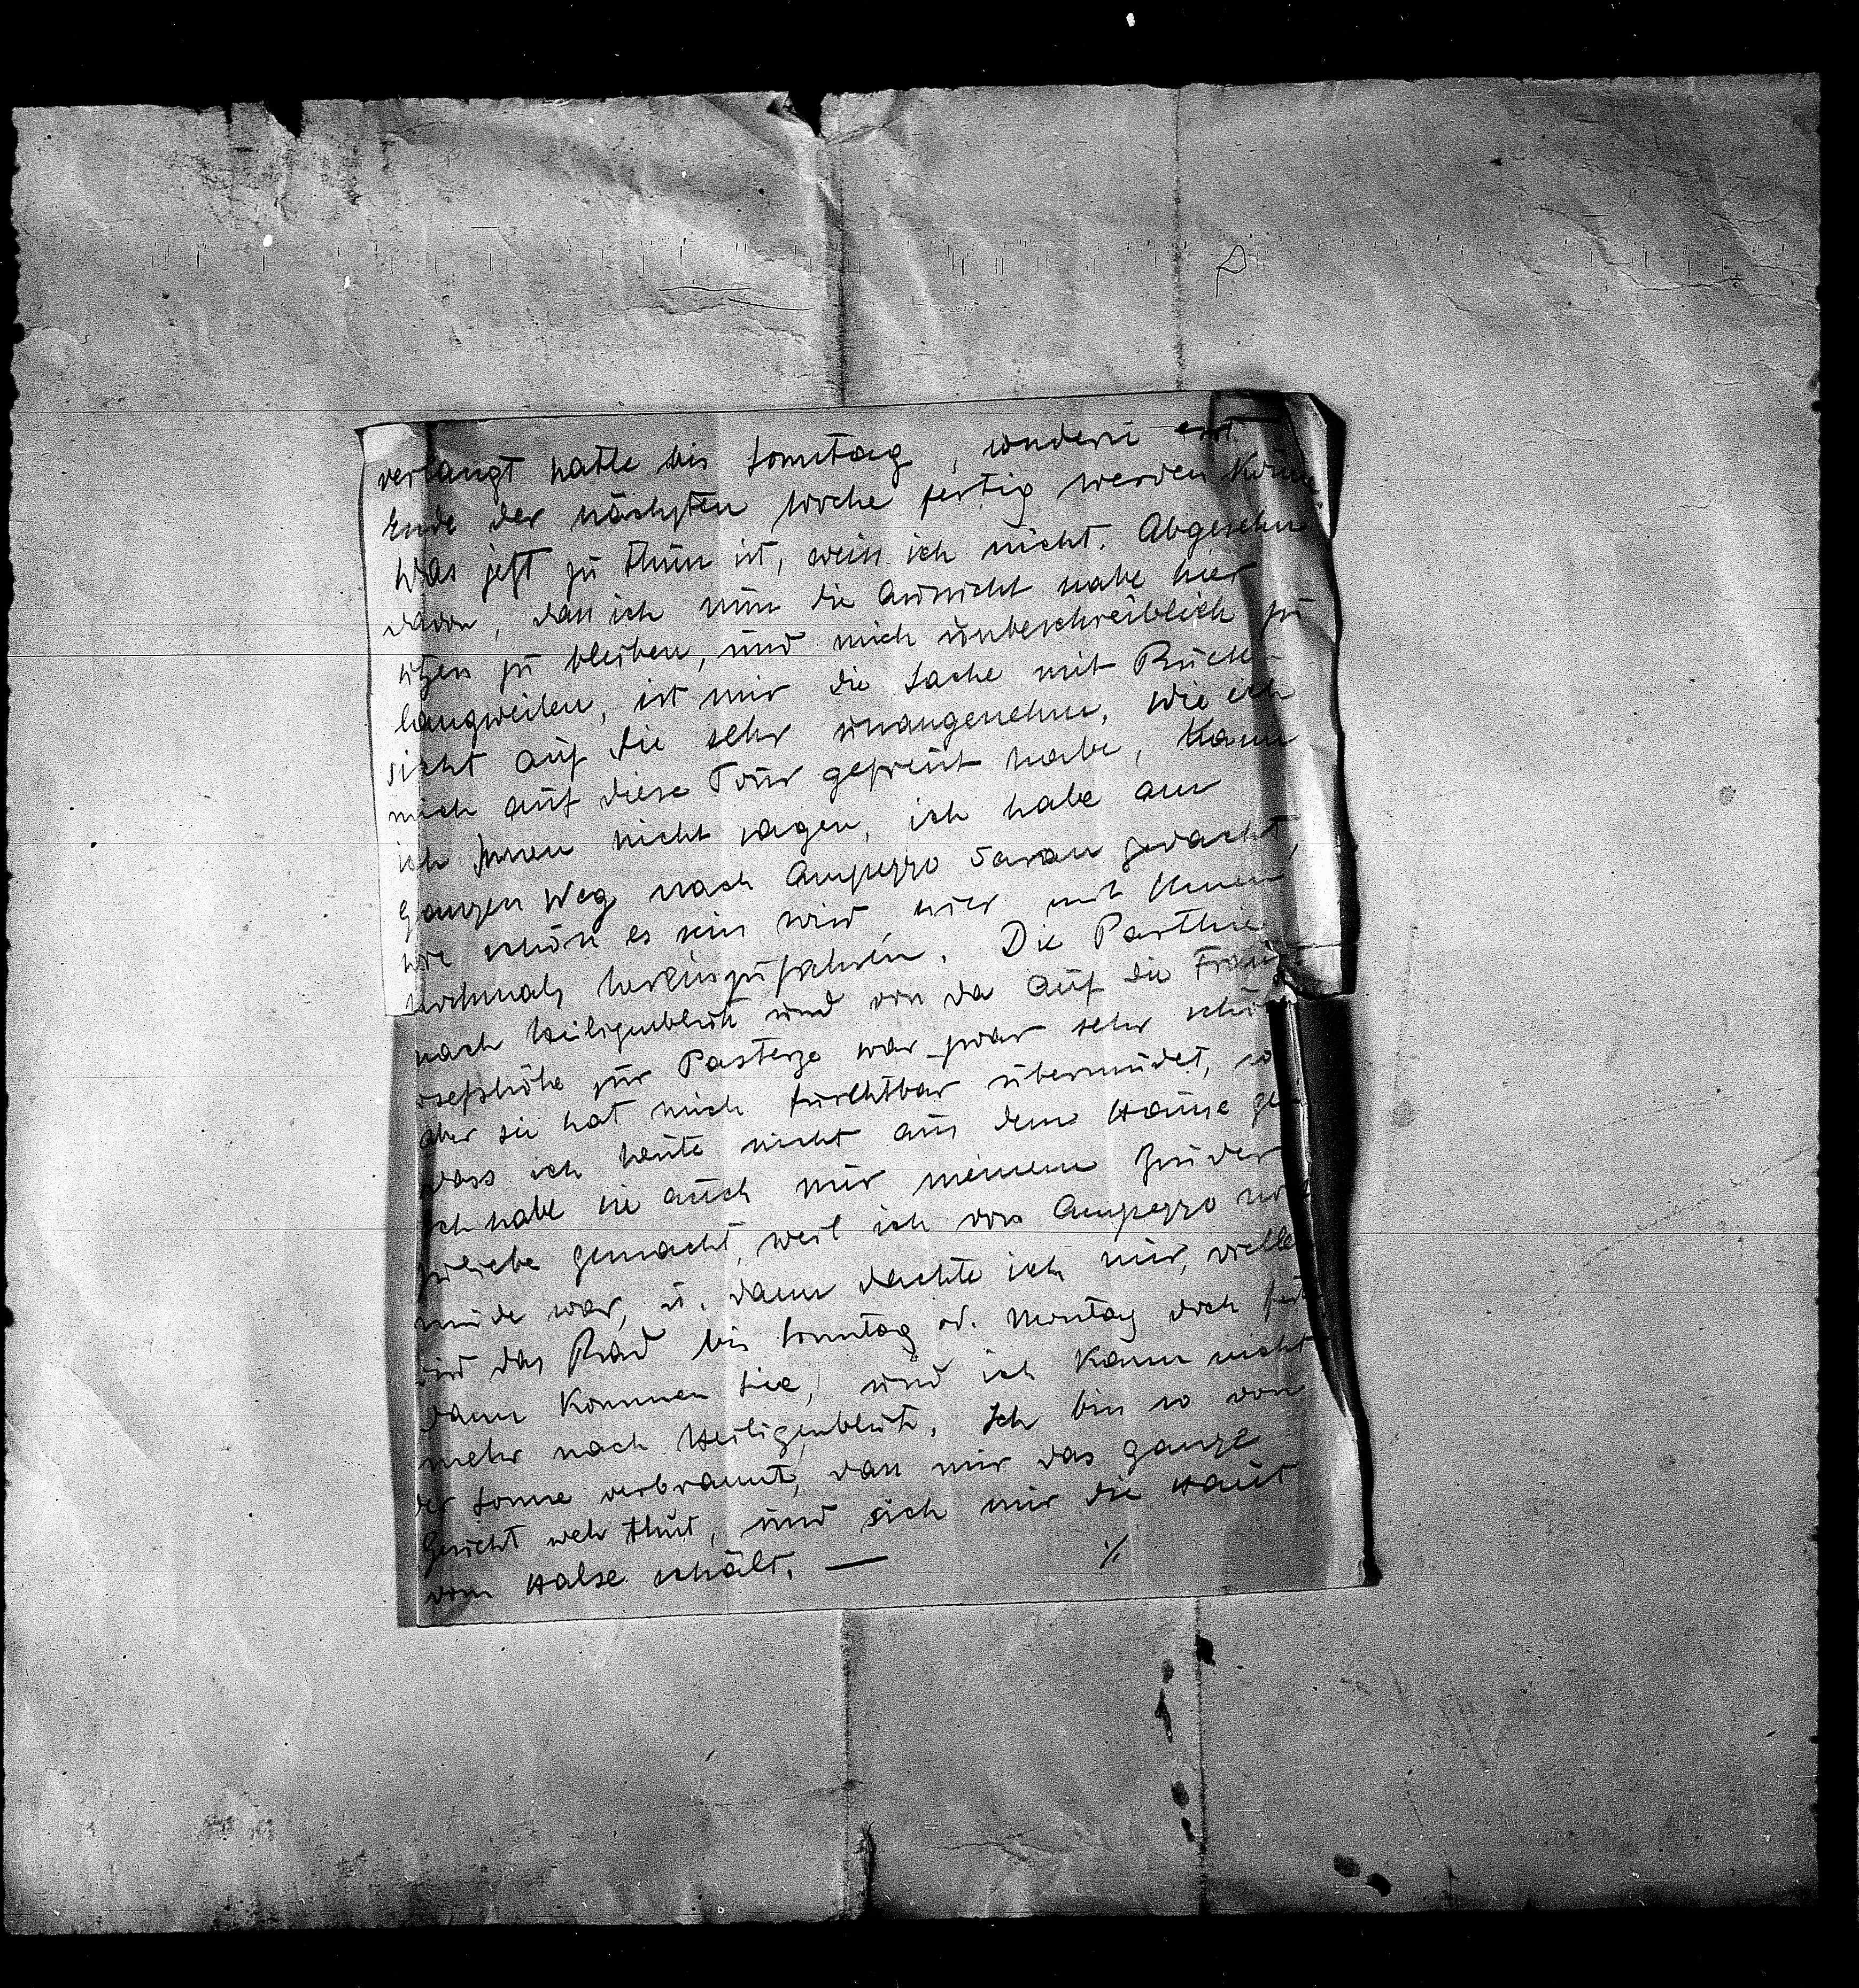 verlangt hatte bis Sonntag, sondern erst
Ende der nächsten Woche fertig werden könne
Was jetzt zu thun ist, weiss ich nicht. Abgesehn
davon, dass ich nun die Aussicht habe hier
sitzen zu bleiben, und mich unbeschreiblich zu
langweilen, ist mir die Sache mit Rück-
sicht auf Sie sehr unangenehm. Wie ich
mich auf diese Tour gefreut habe, kann
ich Ihnen nicht sagen, ich habe am
ganzen Weg nach Ampezzo daran gedacht,
wie schön es sein wird, hier mit Ihnen
nochmals hereinzufahren. Die Parthie
nach Heiligenblut und von da auf die Franz
osefshöhe zur Pasterze war zwar sehr schön
aber sie hat mich furchtbar übermüdet, so
dass ich heute nicht aus dem Hause ge
Ich habe sie auch nur meinem Bruder
zuliebe gemacht, weil ich von Ampezzo noch
müde war, u. dann dachte ich mir, vielle
wird das Rad bis Sonntag od. Montag doch
dann kommen Sie, und ich kann nicht
mehr nach Heiligenblut. Ich bin so von
der Sonne verbrannt, dass mir das ganze
Gesicht weh thut, und sich mir die Haut
vom Halse schält. —
./.